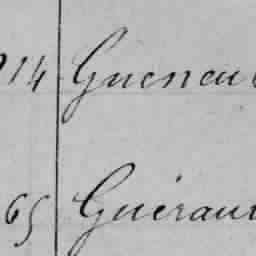 14 Gueneu
65 Guérau